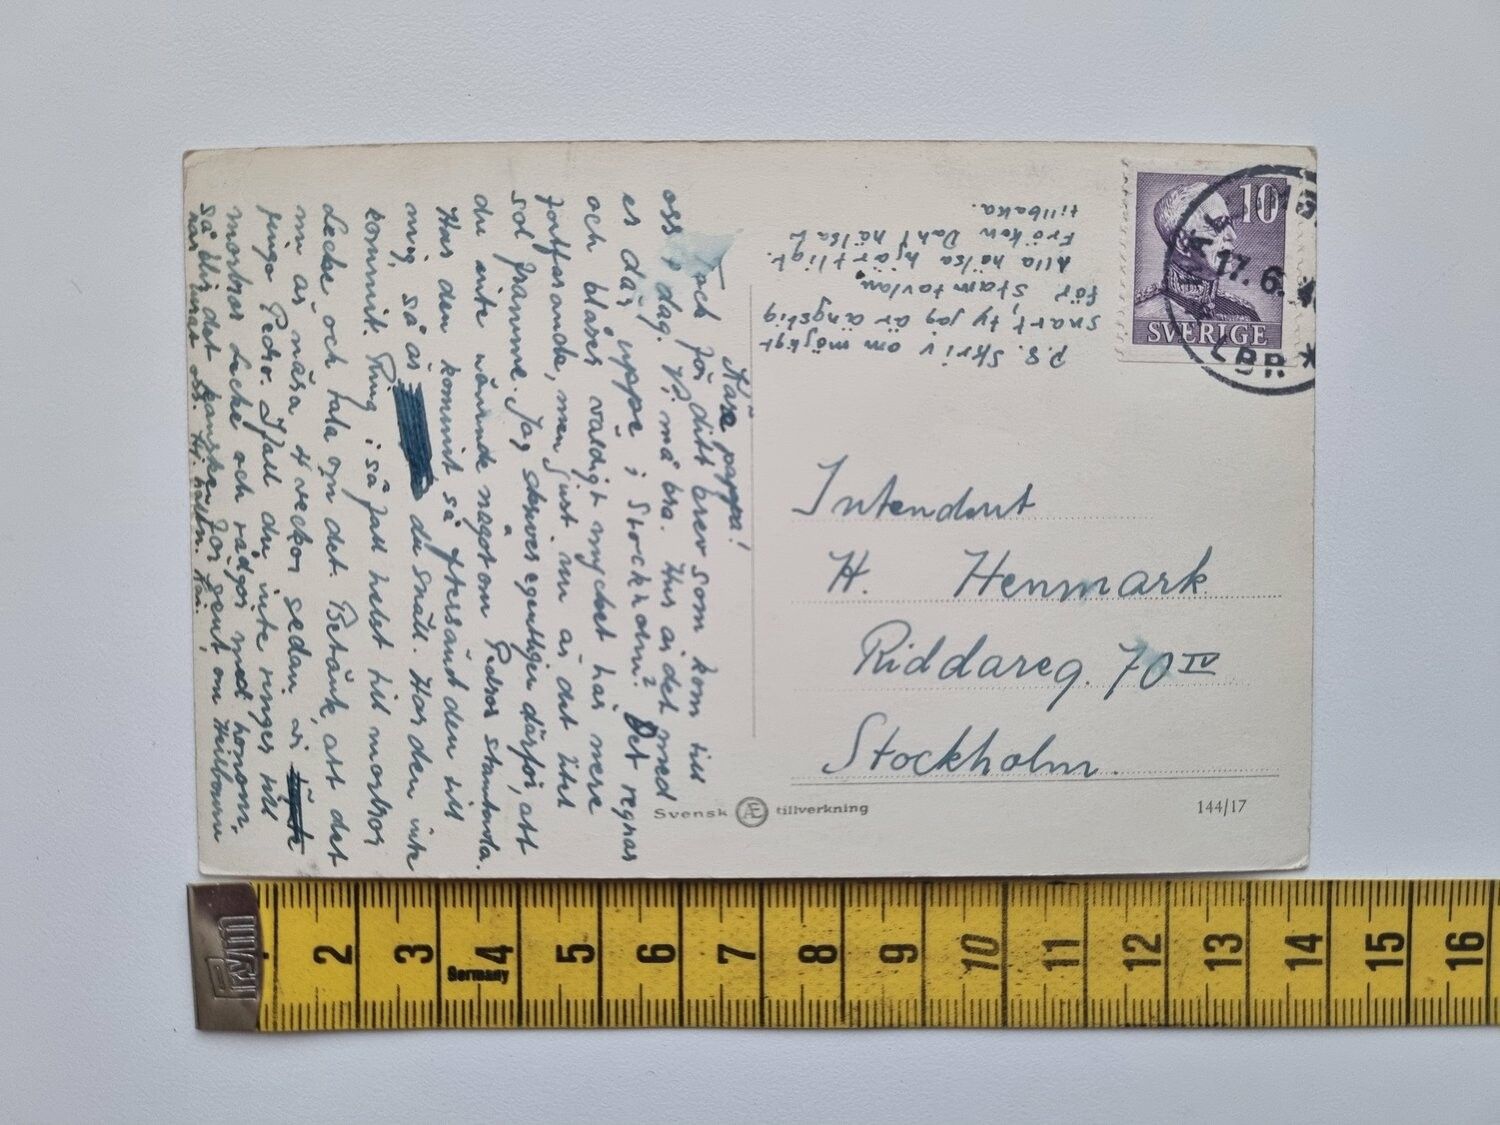 Kära pappa!
Tack för ditt brev som kom till
oss i dag. Vi må bra. Hur är det med
er där uppe i Stockholm? Det regnar
och blåser väldigt mycket här mera
fortfarande, men just nu är det litet
sol framme. Jag skrives egentligen därför, att
du inte nämnde något om Pedros stamtavla.
Har den kommit så eftersänd den till
mig, så är du snäll. Har den inte
kommit. Ring i så fall helst till mostros
Lecke och tala om det. Betänk, att det
nu är nära 4 veckor sedan vi
fingo Pedro. Ifall du inte ringer till
mostros Lecke och rådgör med honom,
så blir det kansken för sent om Heilborn
har lurat oss. Hj. hälsn. Kaj.
P.S. Skriv om möjligt
snart, ty jag är ängslig
för stamtavlan.
Alla hälsa hjärtligt.
Fröken Dahl hälsa t
tillbaka.
10
SVERIGE
17.6.4
LBR *
Intendent
H. Henmark
Riddareg. 70 IV
Stockholm.
Svensk Æ tillverkning
144/17
Prym
2 3 4 5 6 7 8 9 10 11 12 13 14 15 16
Germany